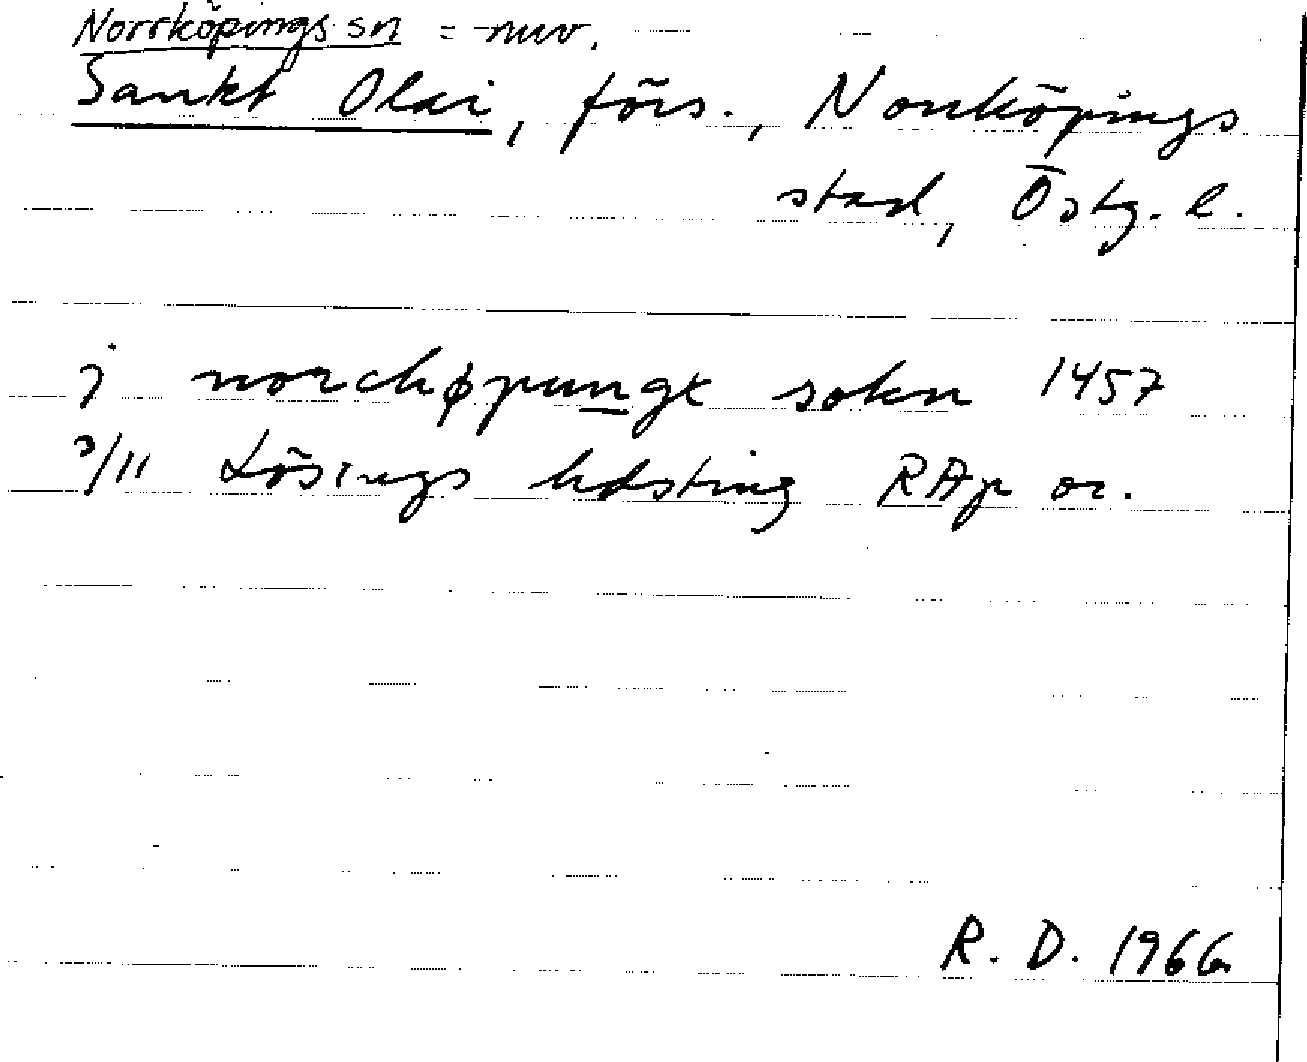 Norrköpings sn = nuv.
Sankt Olai, förs., Norrköpings
stad, Östg. l.
j norchøpungx sokn 1457
3/11 Lösings hdsting RAp or.
R. D. 1966